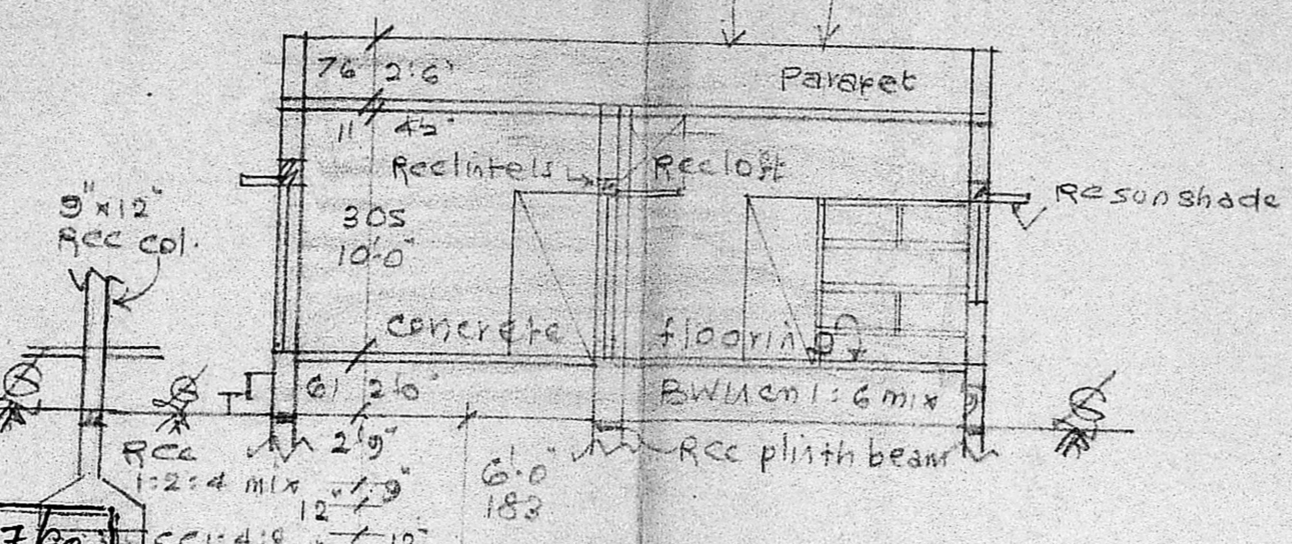 76 2'6"
Parapet
11 4½"
Rcc lintels
Rcc loft
Rc sunshade
9"x12"
Rcc col.
305
10'-0"
Concrete flooring
61 2'0"
BW in cm 1:6 mix
2'9"
Rcc plinth beam
Rcc
1:2:4 mix
9"
12"
6'-0"
183
CC 1:4:8
12"